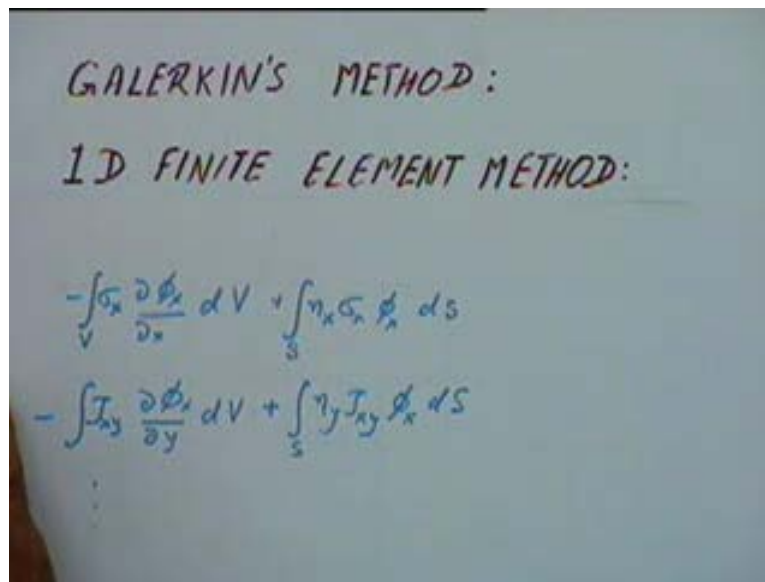 GALERKIN'S METHOD:
1D FINITE ELEMENT METHOD:
-∫_V σ_x ∂ϕ_x/∂x dV + ∫_S n_x σ_x ϕ_x dS
- ∫ τ_xy ∂ϕ_x/∂y dV + ∫_S n_y τ_xy ϕ_x dS
⋮